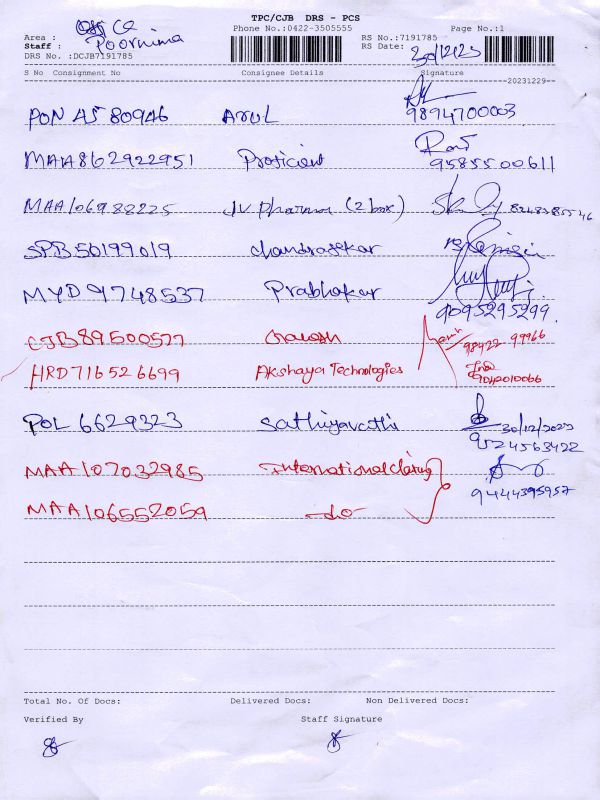 TPC/CJB DRS - PCS
Area : CG
Phone No.:0422-3505555
RS No.:7191785
Page No.:1
Staff : Poornima
RS Date: 30/12/23
DRS No. :DCJB7191785
S No Consignment No Consignee Details Signature
20231229
PON AJ 80946 ARUL 9894700003
MAA862922951 Proficient 9585500611
MAA106988225 JV Pharma (2 box) 8248385546
SPB50199019 chandrasekar
MYD9748537 Prabhakar 9095295299.
CJB89500577 98422 99966
HRD716526699 Akshaya Technologies 9042010066
POL 6629323 Sathiyavathi 30/12/2023
9524563422
MAA107032985 International
9444395957
MAA106552059 -do-
Total No. Of Docs: Delivered Docs: Non Delivered Docs:
Verified By Staff Signature